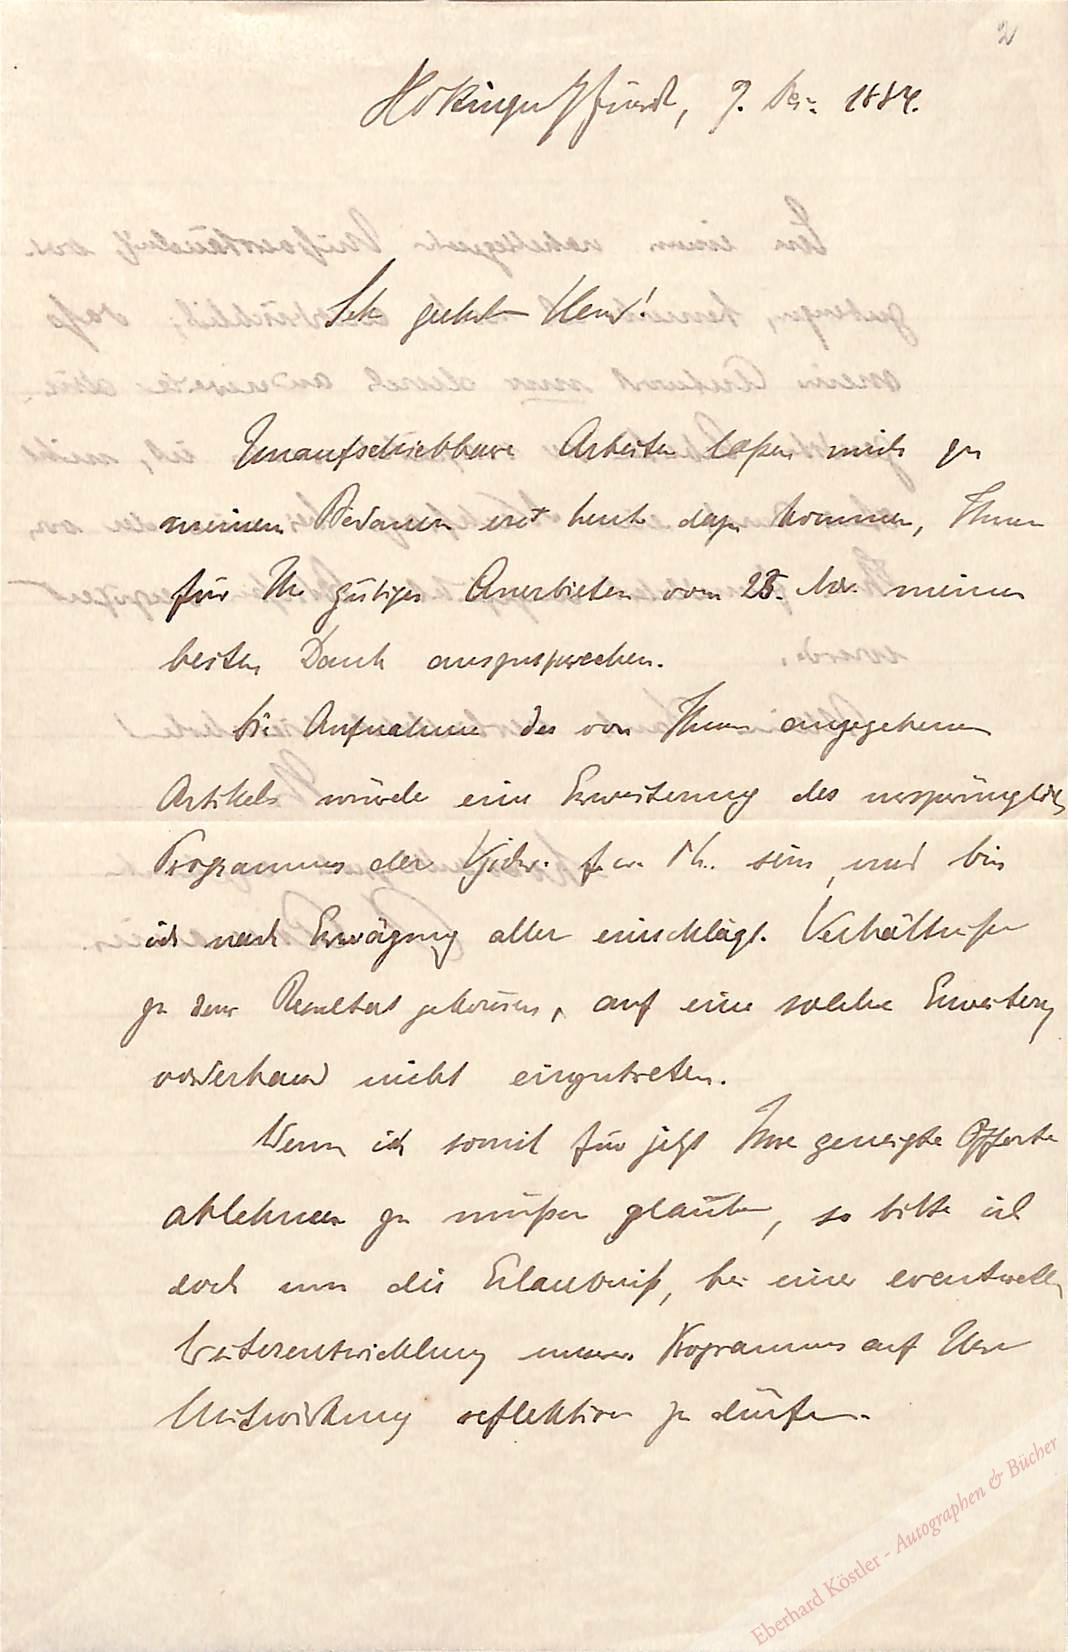 2
Hottingen Zürich, 9. Dez. 1884.
Sehr geehrter Herr!
Unaufschiebbare Arbeiten laßen mich zu
meinem Bedauern erst heute dazu kommen, Ihnen
für Ihr gütiges Anerbieten vom 28. Nov. meinen
besten Dank auszusprechen.
Die Aufnahme des von Ihnen angegebenen
Artikels würde eine Erweiterung des ursprünglichen
Programmes der f. w. Ph. sein, und bin
ich nach Erwägung aller einschlägt. Verhältnisse
zu dem Resultat gekommen, auf eine solche Erweiterung
vorderhand nicht einzutreten.
Wenn ich somit für jetzt Ihre geneigte Offerte
ablehnen zu müßen glaube, so bitte ich
doch um die Erlaubniß, bei einer eventuellen
Weiterentwicklung unseres Programmes auf Ihre
Mitwirkung reflektiren zu dürfen.
Eberhard Köstler - Autographen & Bücher